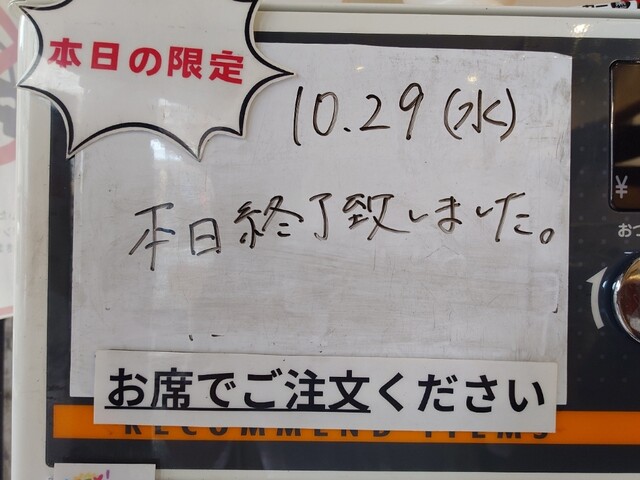 本日の限定
10.29(水)
本日終了致しました。
¥
おつ
お席でご注文ください
RECOMMEND ITEMS